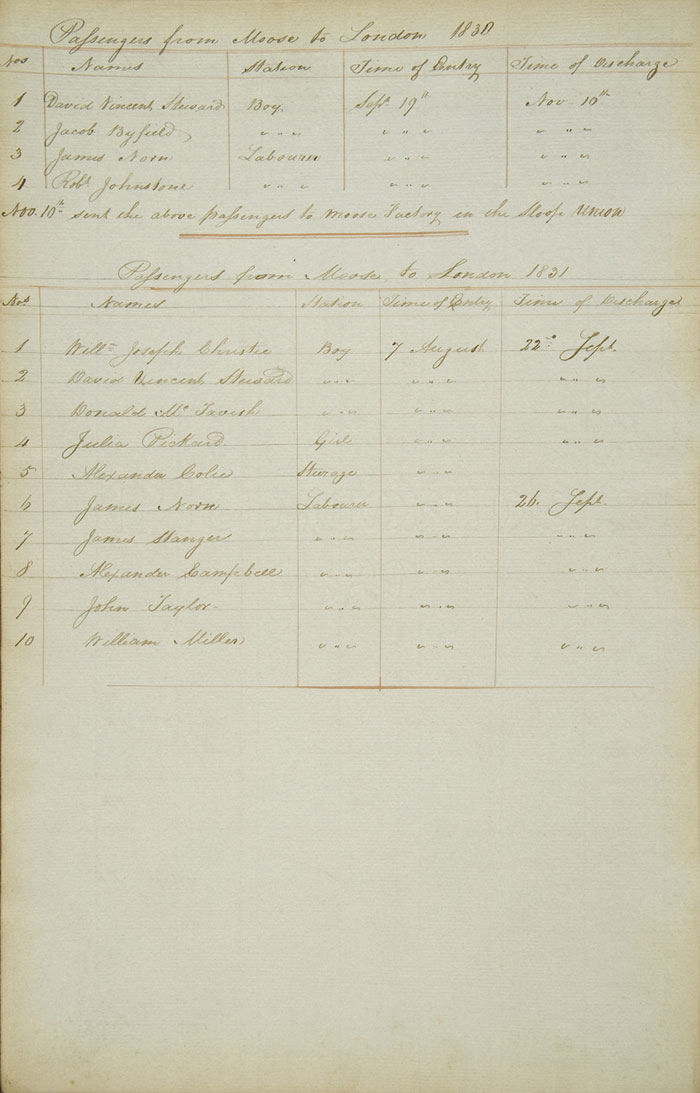 Passengers from Moose to London 1830
Nos Names Station Time of Entry Time of Discharge
1 David Vincent Steward Boy Sept 19th Nov. 10th
2 Jacob Byfield " " " " " " " " "
3 James Norn Labourer " " " " " "
4 Robt Johnstone " " " " " " " " "
Nov. 10th sent the above passengers to Moose Factory in the Sloop Union
Passengers from Moose to London 1831
Nos Names Station Time of Entry Time of Discharge
1 Willm Joseph Christie Boy 7 August 22nd Sept.
2 David Vincent Steward " " " " " " " " "
3 Donald Mc Tavish " " " " " " " " "
4 Julia Pickard. Girl " " " " " "
5 Alexander Colie " " "
6 James Norn Labourer " " " 26. Sept.
7 James Stanger " " " " " " " " "
8 Alexander Campbell " " " " " " " " "
9 John Taylor " " " " " " " " "
10 William Miller " " " " " " " " "